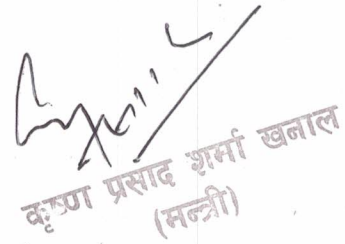 कृष्ण प्रसाद शर्मा खनाल
(मन्त्री)